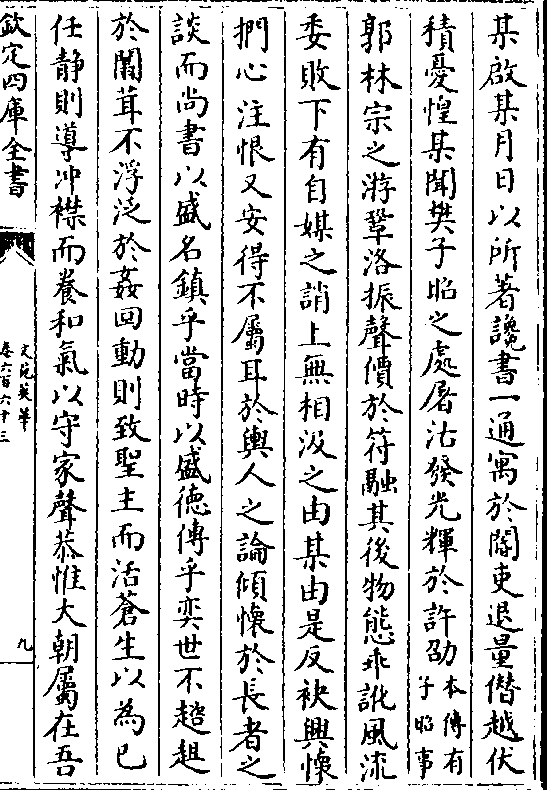 某啟某月日以所著讒書一通寓於閽吏退量僭越伏
積憂惶某聞樊子昭之處屠沽發光輝於許劭本傳有
子昭事
郭林宗之游鞏洛振聲價於符融其後物態乖訛風流
委敗下有自媒之誚上無相汲之由某由是反袂興懷
捫心注恨又安得不屬耳於輿人之論傾懷於長者之
談而尚書以盛名鎮乎當時以盛德傳乎奕世不趑趄
於闒茸不浮泛於姦回動則致聖主而活蒼生以為已
任靜則導冲襟而養和氣以守家聲恭惟大朝屬在吾
欽定四庫全書
文苑英華
卷六百六十三
九